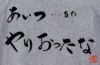 あいつ…また
やりおったな